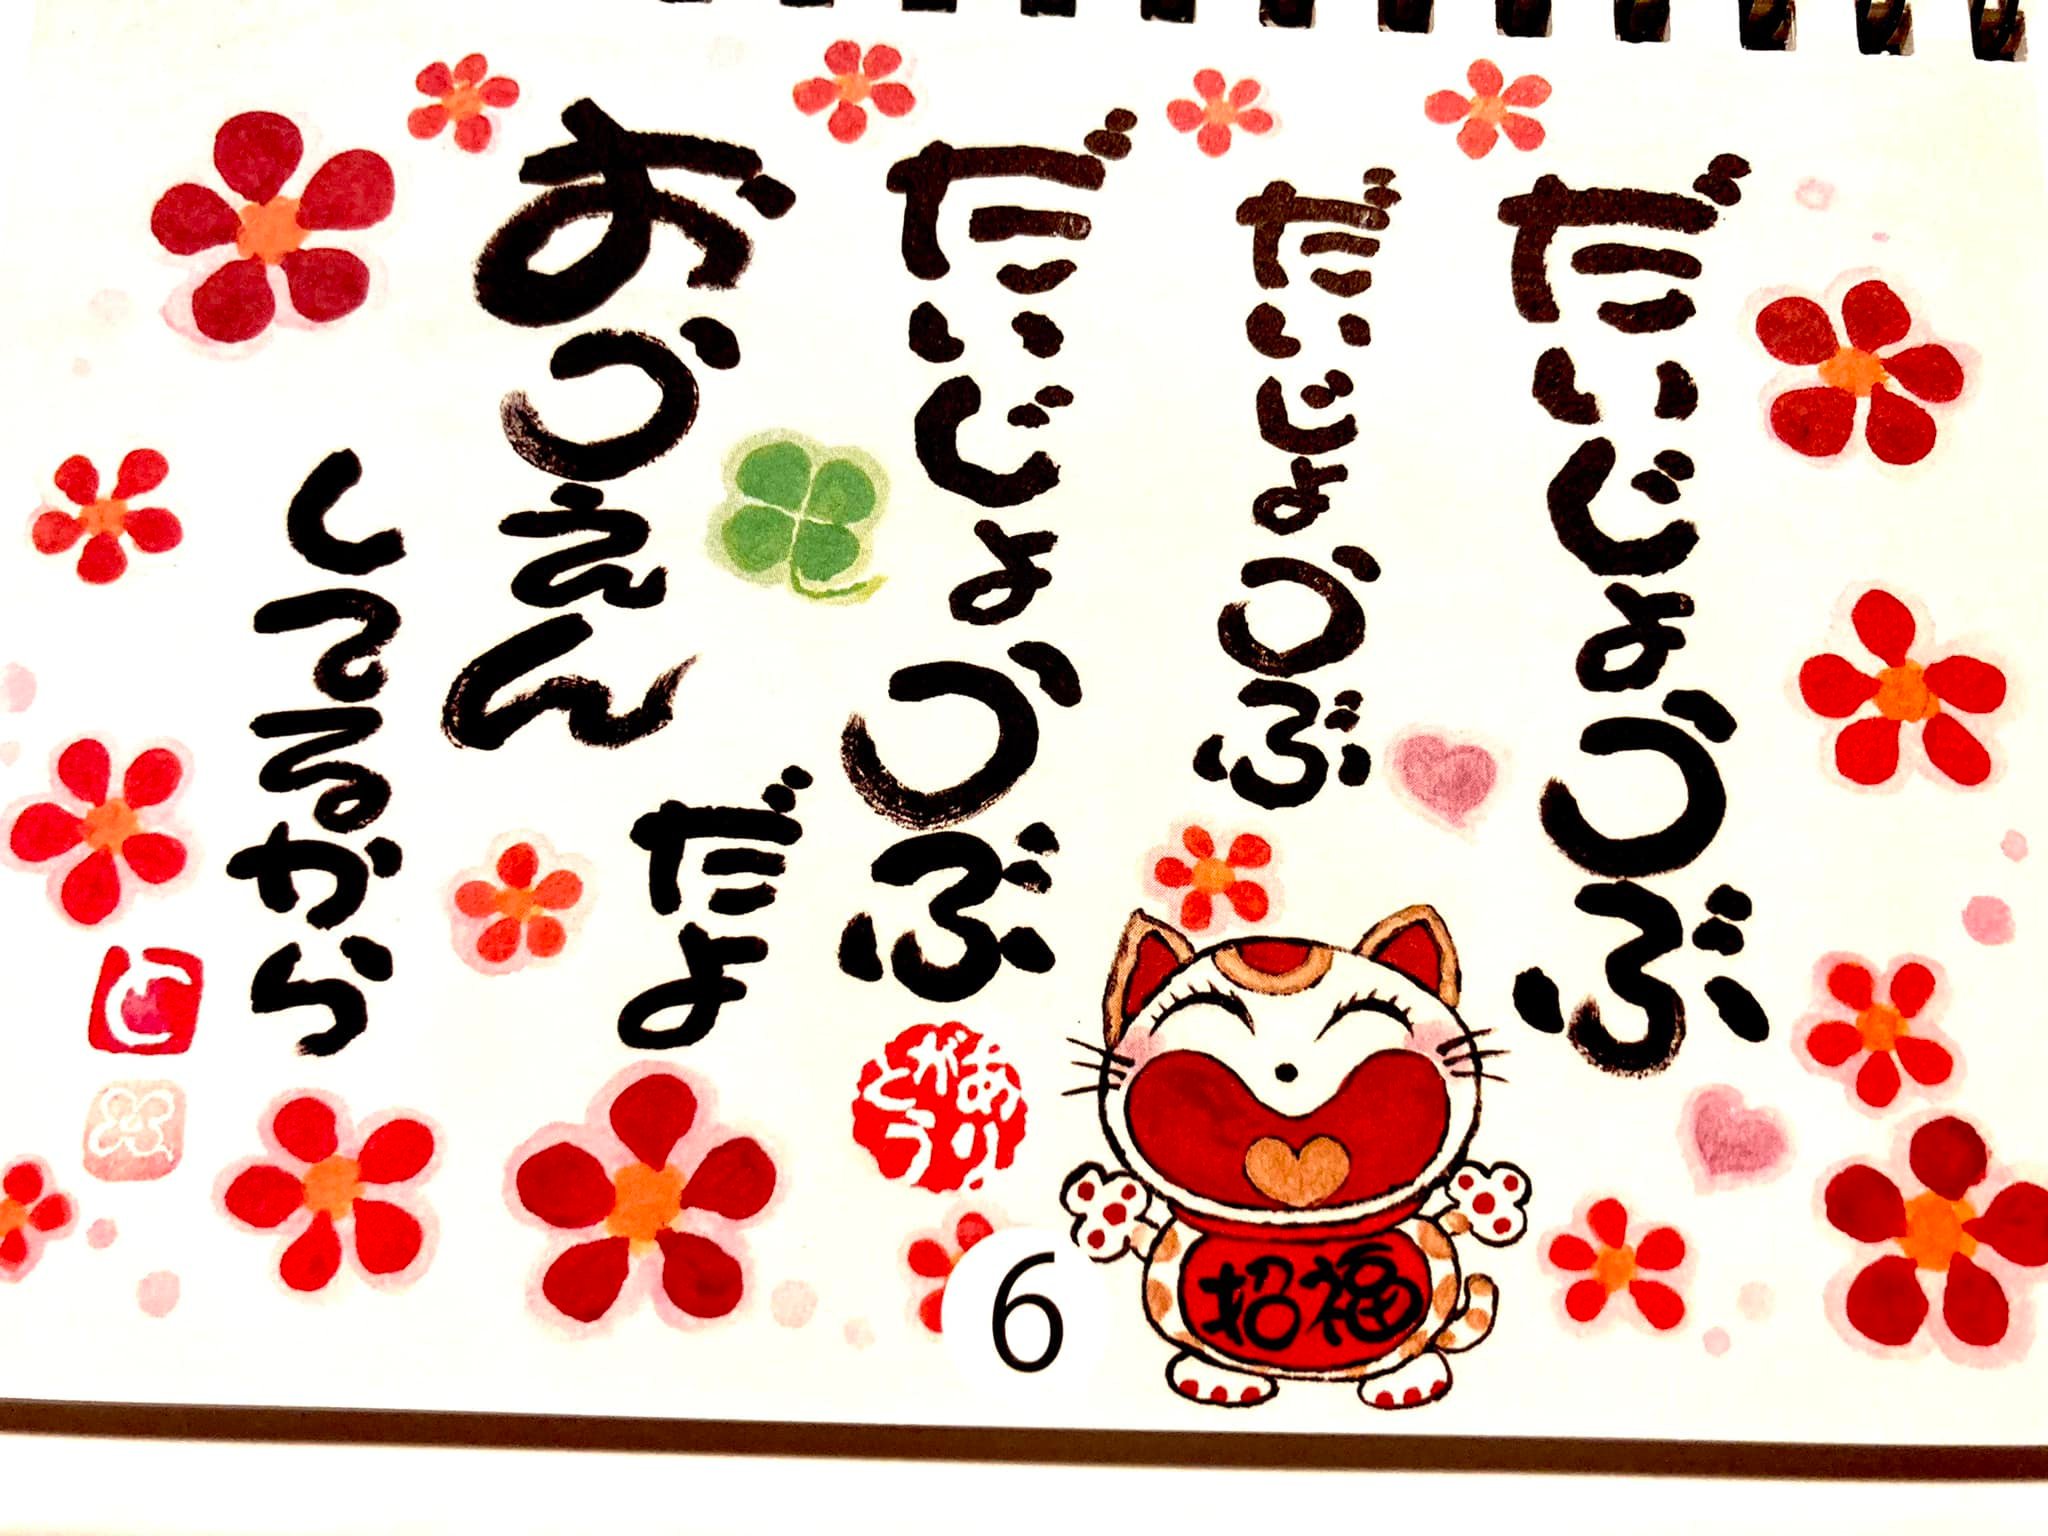 だいじょうぶ
だいじょうぶ
だいじょうぶ
だよ
おうえん
してるから
ありがとう
招福
6